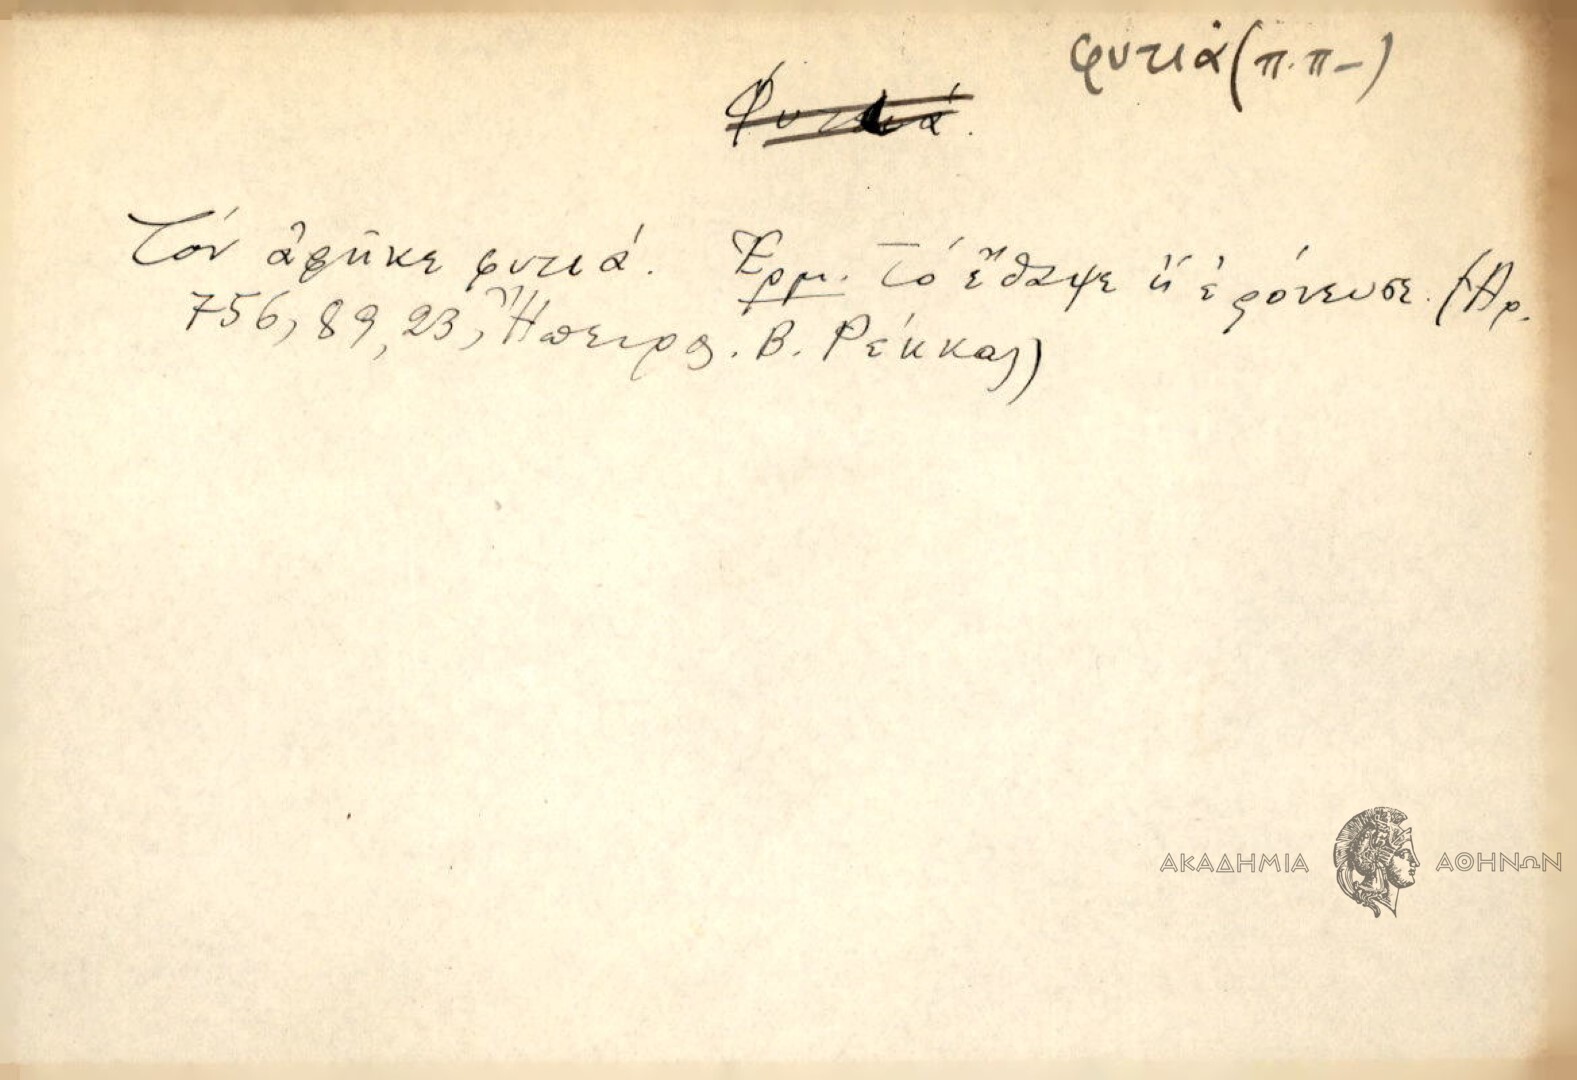 φυτιά (π.π-)
Φυτιά.
Τόν ἀφῆκε φυτιά. Ἑρμ. τό ἔθαψε ἤ ἐφόνευσε. (Ἀρ.
756, 89, 23, Ἤπειρος. Β. Ρέκκας)
ΑΚΑΔΗΜΙΑ ΑΘΗΝΩΝ